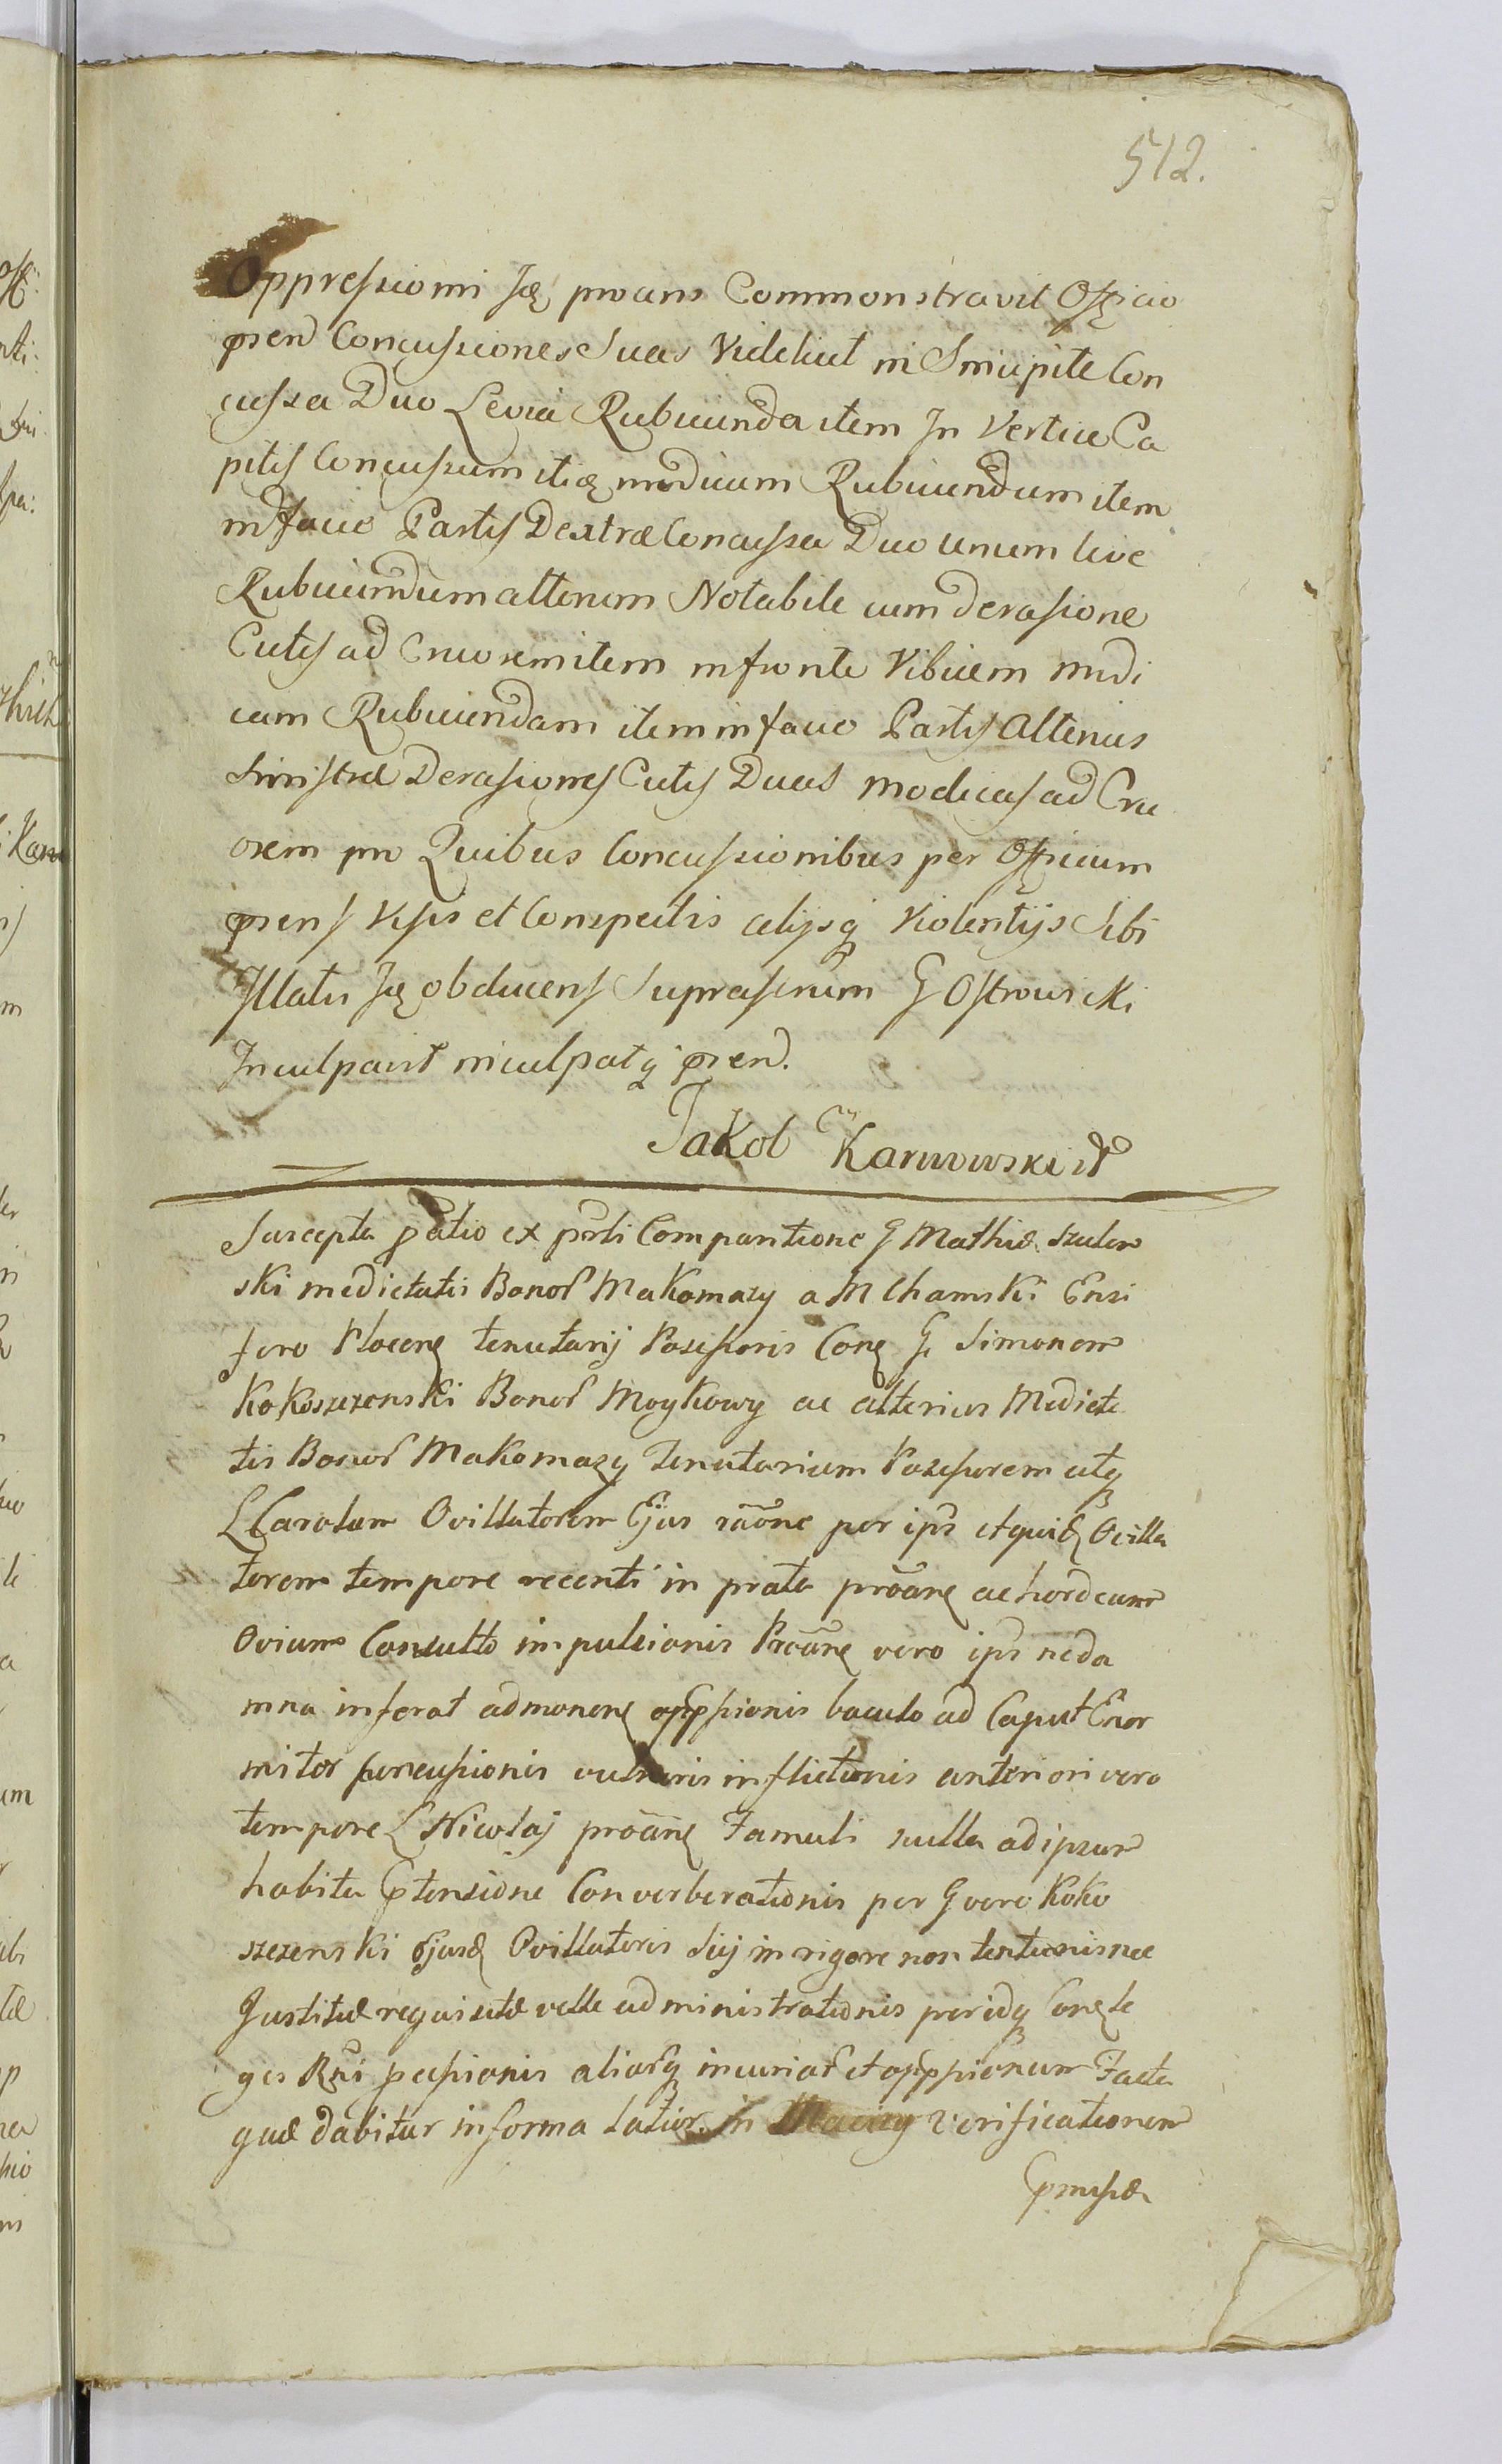 512.
Oppressioni Ideq proans Commonstravit Officio
prsen Concussiones Suas Videlicet in Sincipite Con
cussa Duo Levia Rubicunda item In Vertice Ca
pitis Concussum itidq modicum Rubicundum item
in facie Partis Dextræ Concussa Duo unum leve
Rubicundum alterum Notabile cum derasione
Cutis ad Cruorem item in fronte Vibicem modi
cam Rubicundam item in facie Partis alterius
Sinistræ Derasiones Cutis Duas modicas ad Cru
orem pro Quibus Concussionibus per Officium
prsens Visis et Conspectis alijsq Violentijs Sibi
Illatis obducens Suprascrium G Ostrowicki
Inculpavit inculpatq prsen.
Jakob Karwowski
Suscepta ptatio ex prti Comparitione G Mathiæ Szulew
ski medietatis Bonor Makomazy a M Chamski Ensi
fero Plocen tenutarij Possessoris Con G Simonem
Kokoszczenski Bonor Moykowy ac alterius Mediete
tis Bonor Makomazy Tenutarium Possessorem atq
L Carolum Ovillatorem Ejus raone per ips et quid Ovilla
torem tempore recenti in prata proan ac hordeum
Ovium Consulto impulsionis Proan vero ips ne da
mna inferat admonen oppssionis baculo ad Caput Enor
miter percussionis vulneris inflictionis anteriori vero
tempore L Nicolaj proan Famuli nulla ad ipsum
habita Ptensione Converberationis per G vero Koko
szczenski ejusd Ovillatoris Sui in rigore non tentionis nec
Justitiæ requisitæ velle administrationis per idq Con le
ges Rni pcessionis aliarq iniuriar et oppssionum Facta
quæ dabitur in forma latior. In verificationem
Præmissor